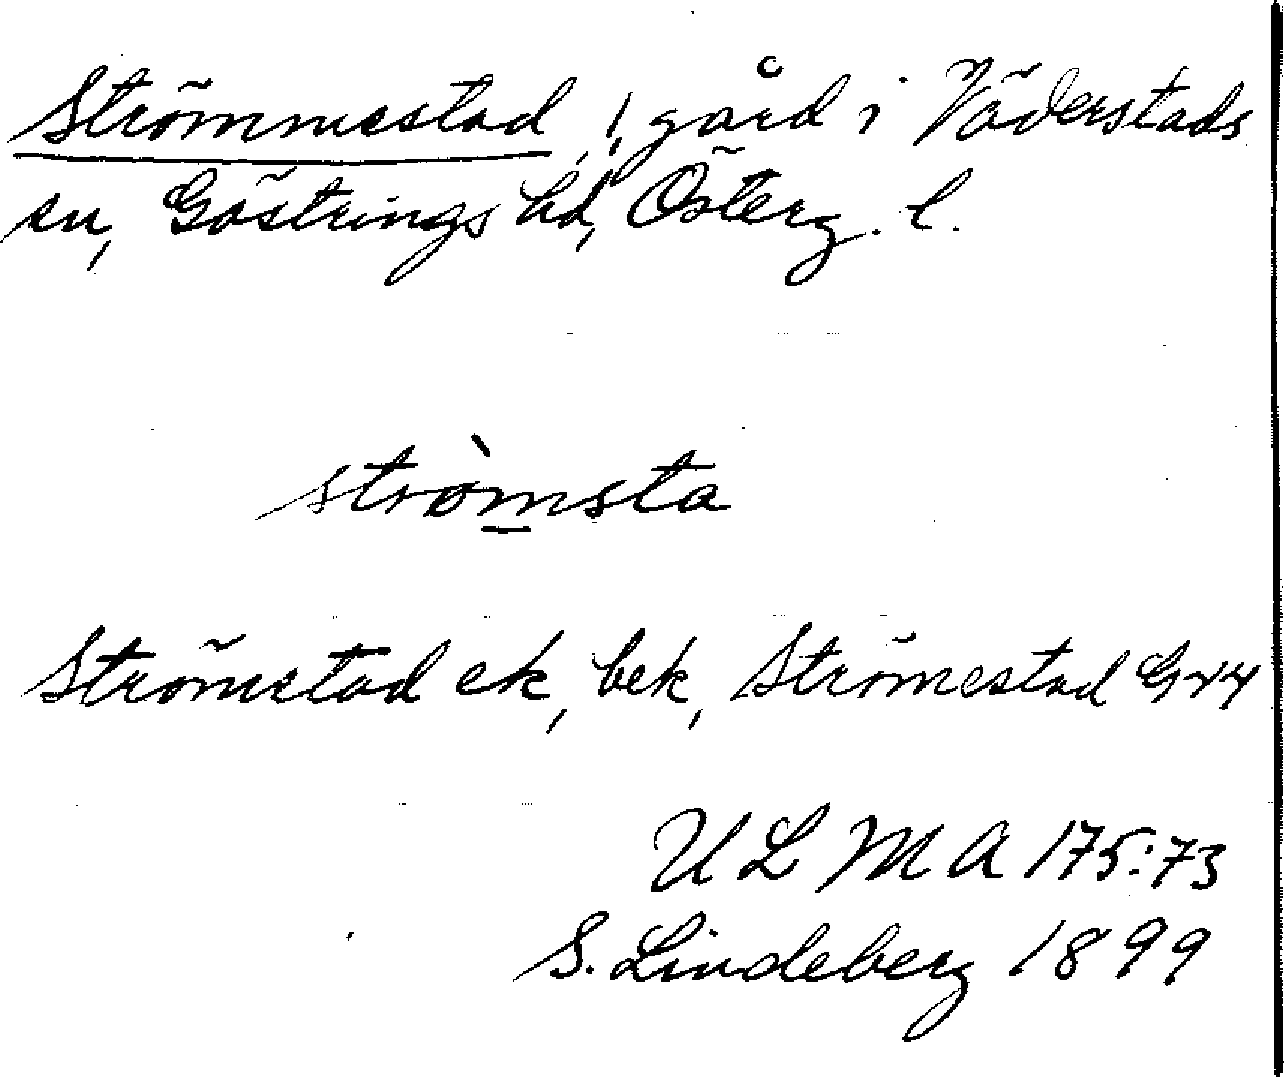 Strömmestad, 1, gård i Väderstads
sn, Göstrings hd, Österg. l.
strò̱msta
Strömstad ek, bek, Strömestad G44
ULMA 175:73
S. Lindeberg 1899